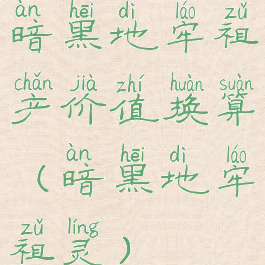 àn hēi dì láo zǔ
暗黑地牢祖
chǎn jià zhí huàn suàn
产价值换算
àn hēi dì láo
（暗黑地牢
zǔ líng
祖灵）